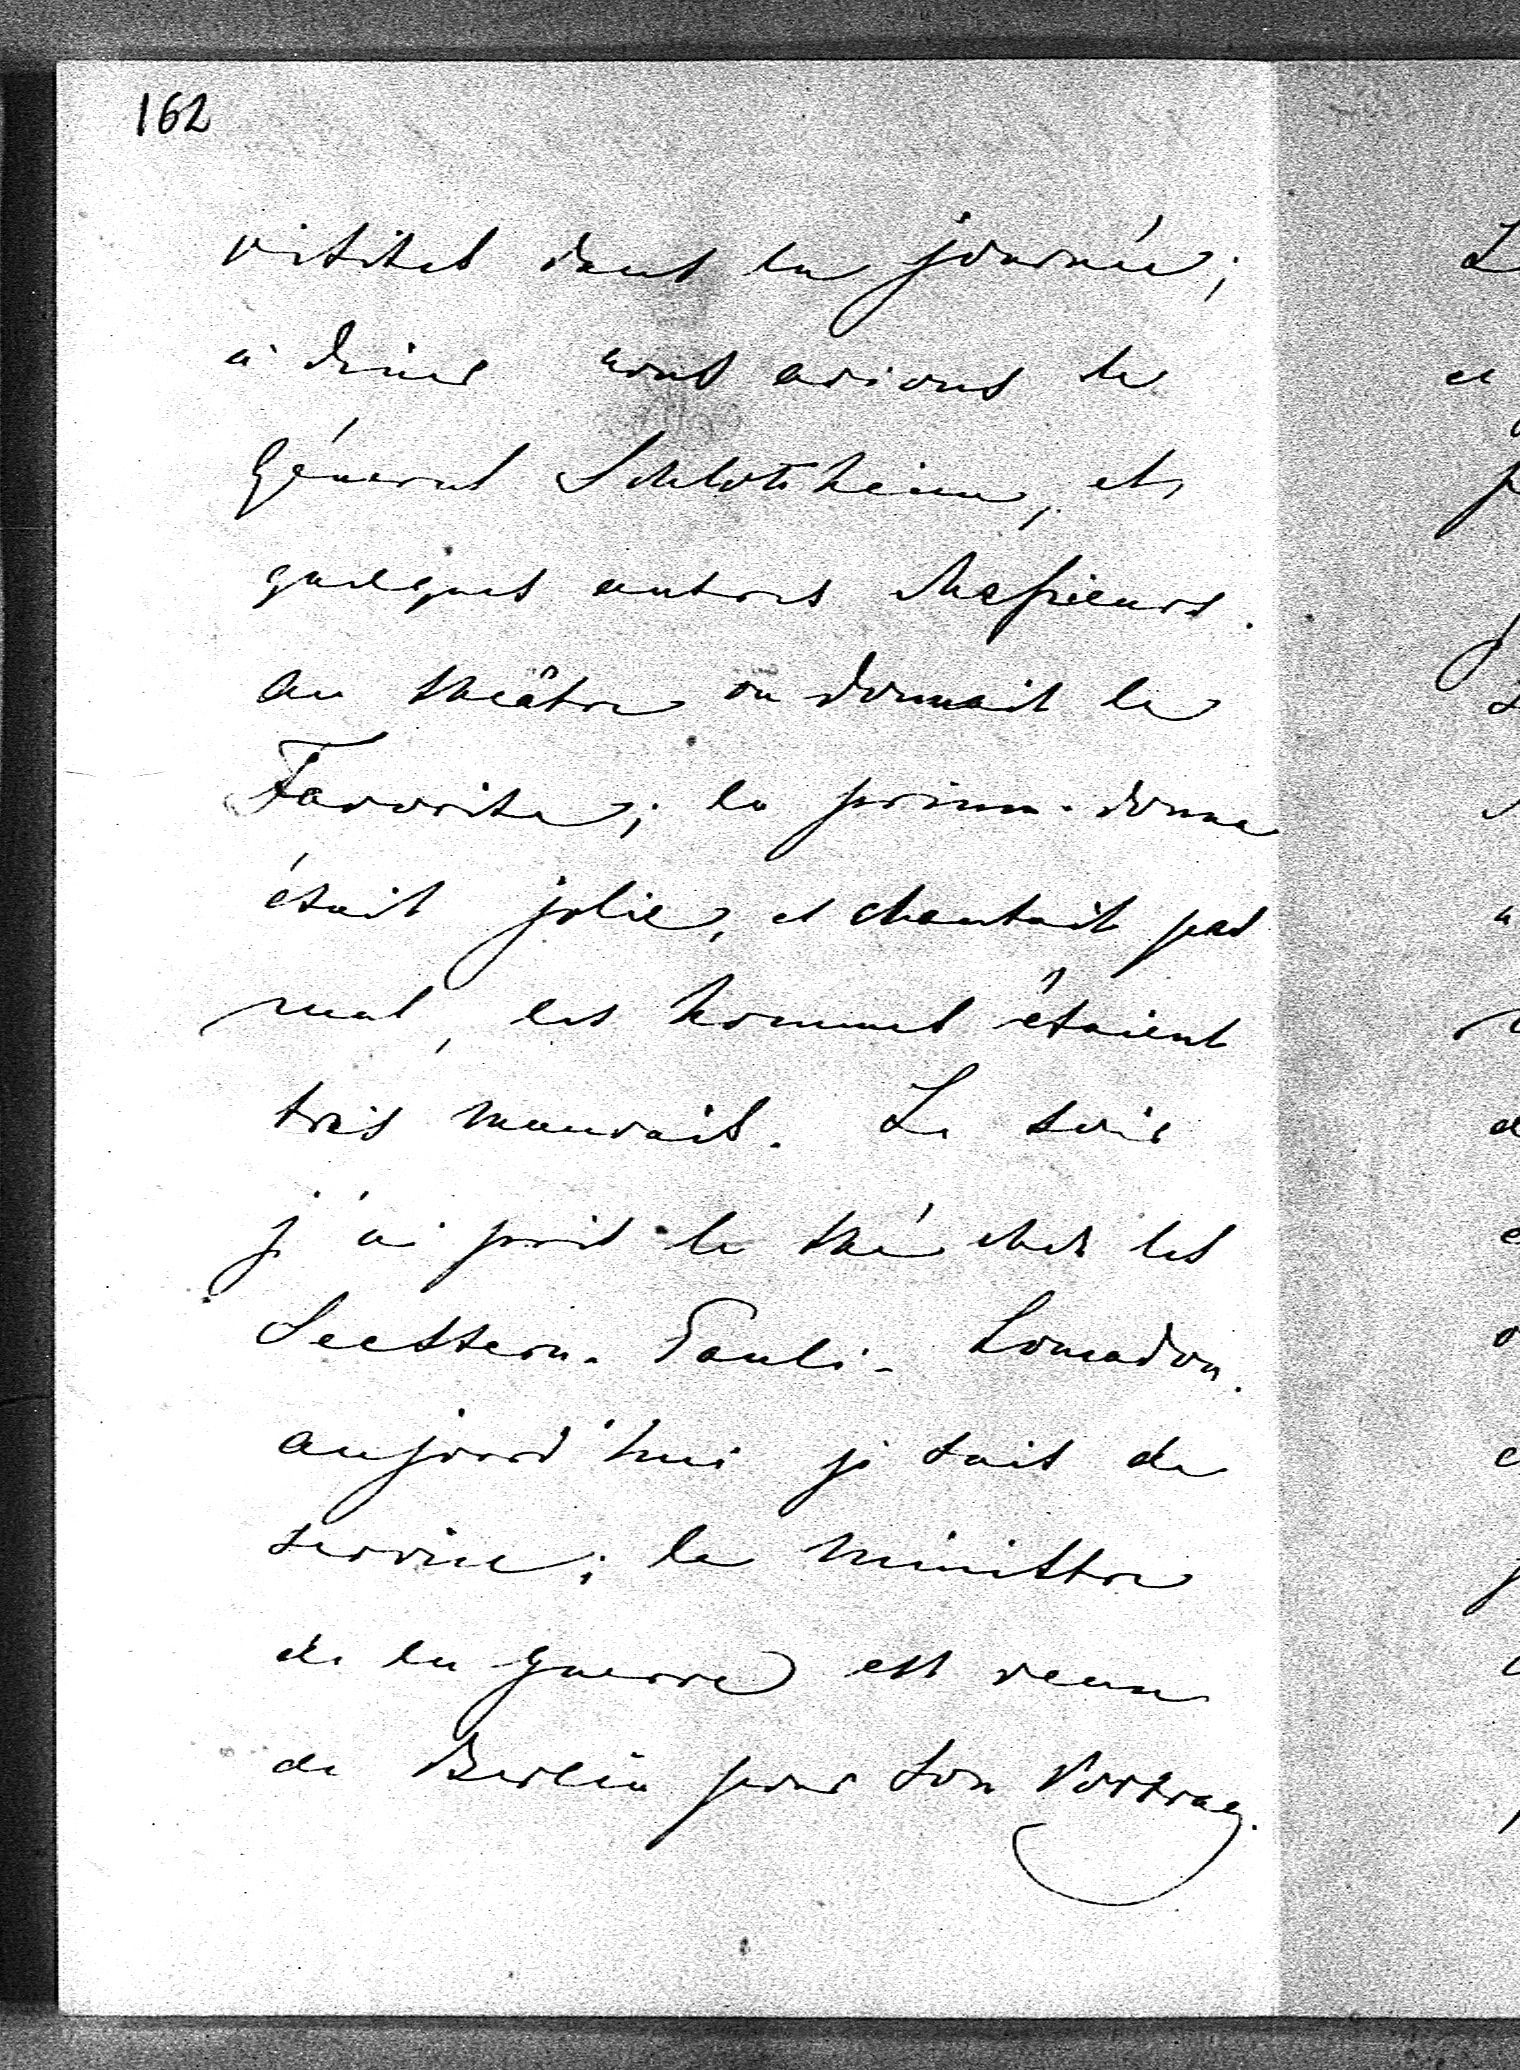 162
visites dans la journée;
à diner nous avions le
Général Schlotheim, et
quelques autres Messieurs.
au théâtre on donnait la
Favorite; la prima-donna
était jolie, et chantait pas
mal, les hommes étaient
très mauvais. Le soir
j'ai pris le thé chez les
Seestern-Pauli-
aujourd'hui je suis de
service; le ministre
de la guerre est venu
de Berlin pour son Vortrag.